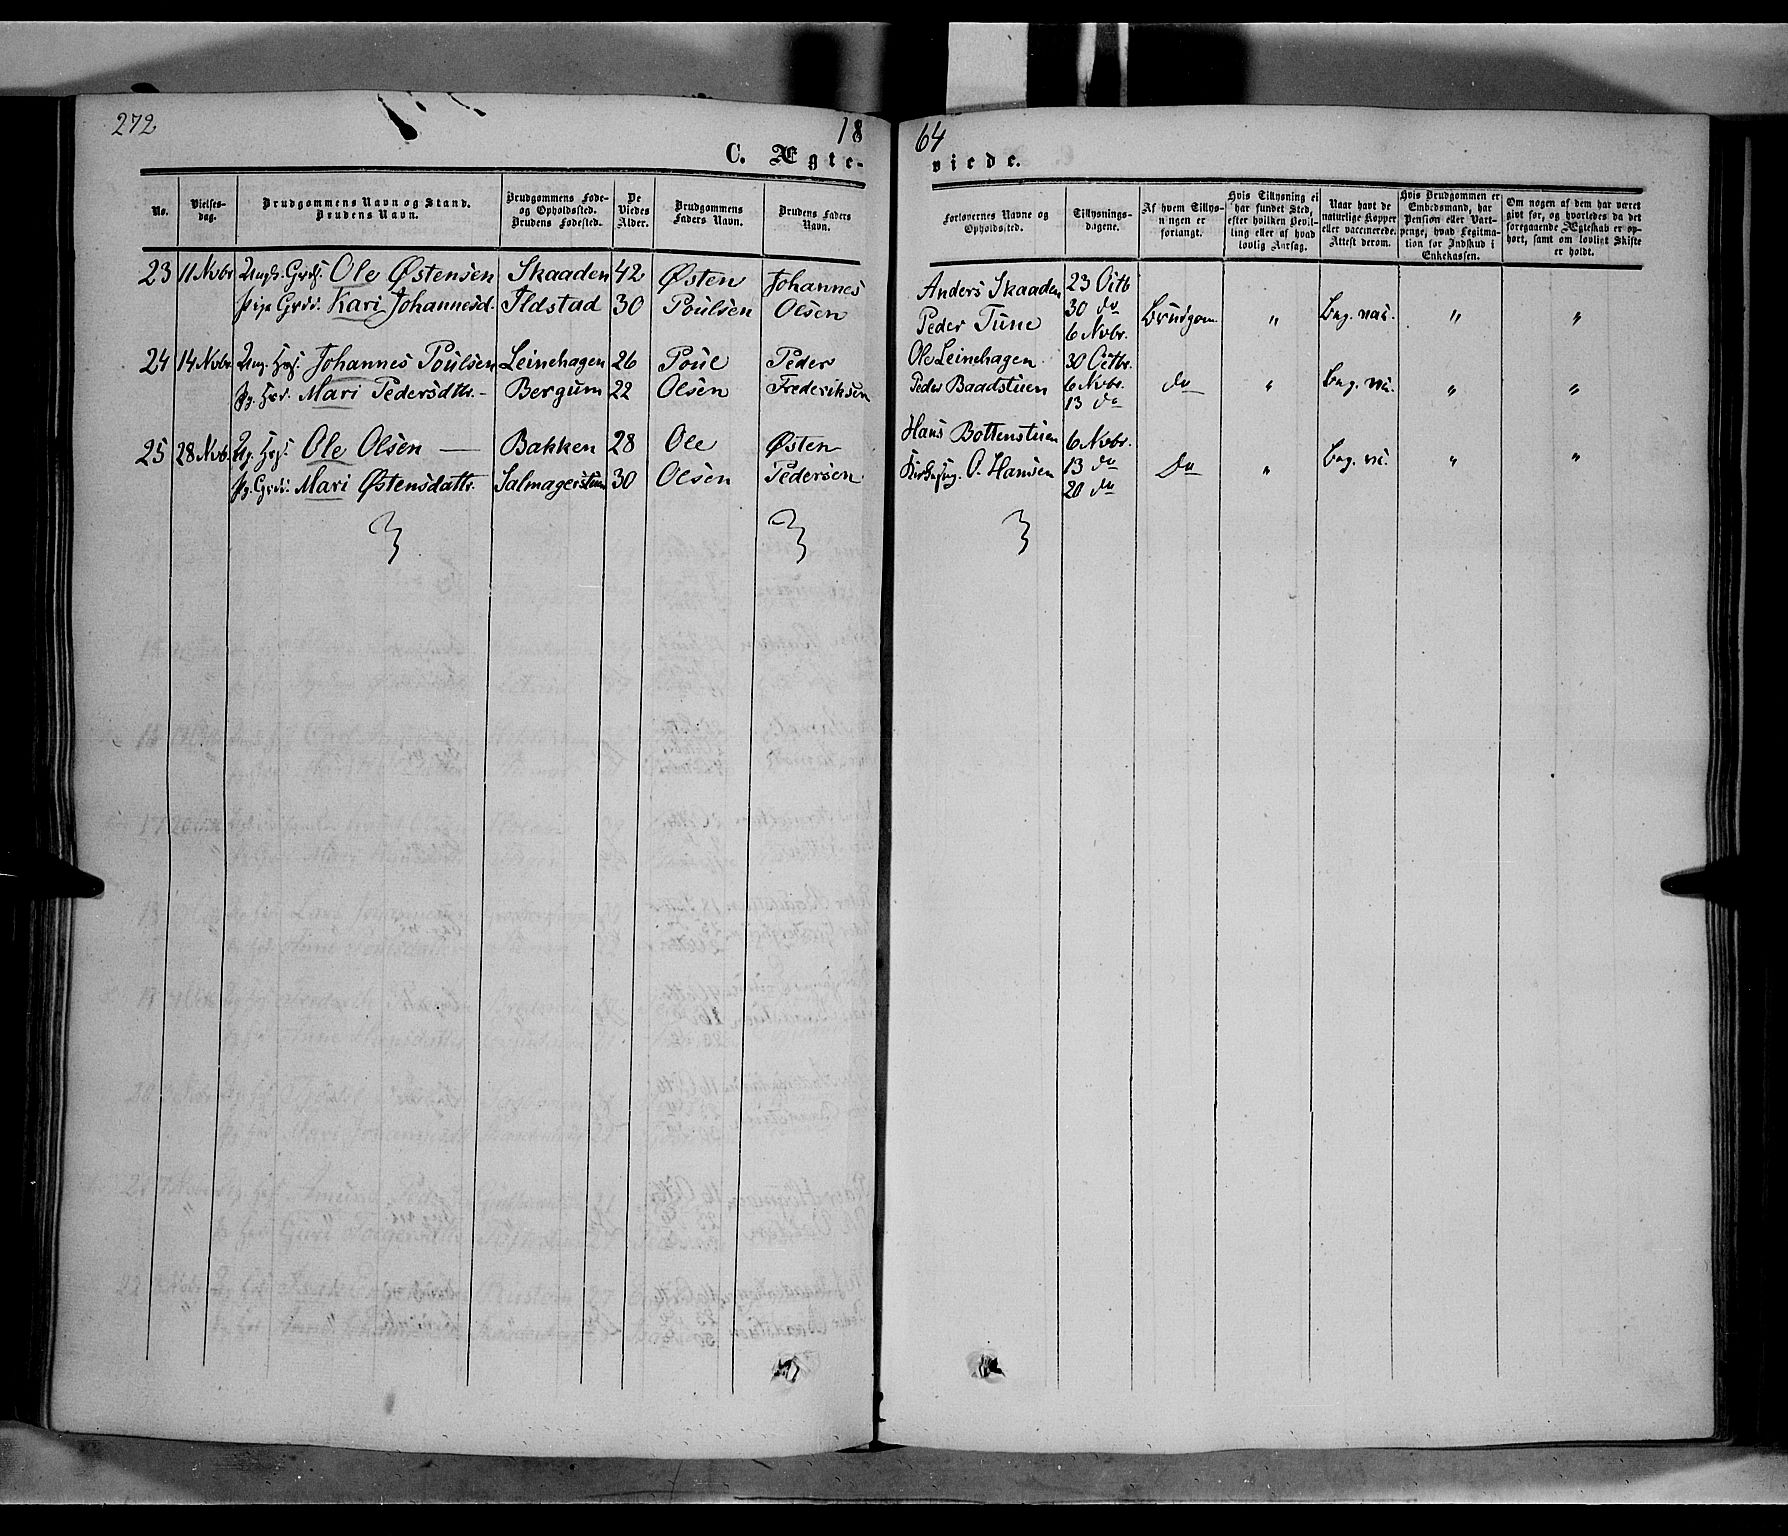 272
18
64
C. Ægte-
viede.
No.
Vielses-
dag.
Brudgommens Navn og Stand.
Brudens Navn.
Brudgommens Føde-
og Opholdssted.
Brudens Fødested.
De
Viedes
Alder.
Brudgommens
Faders Navn.
Brudens Faders
Navn.
Forlovernes Navne og
Opholdssted.
Tillysnings-
dagene.
Af hvem Tillys-
ningen er
forlangt.
Hvis Tillysning ei
har fundet Sted,
efter hvilken Bevil-
ling eller af hvad
lovlig Aarsag.
Naar havt de
naturlige Kopper
eller vaccinerede.
Attest derom.
Hvis Brudgommen er
Embedsmand, har
Pension eller Vart-
penge, hvad Legitima-
tion for Indskud i
Enkekassen.
Om nogen af dem har været
givt før, og hvorledes da det
foregaaende Ægteskab er op-
hørt, samt om lovligt Skifte
er holdt.
23 11 Nvbr Ungk. Grds. Ole Østensen Skaaden 42 Østen Johannes Anders Skaaden 23 Octb
Pige Grds. Kari Johannesd. Ildstad 30 Poulsen Olsen Peder Tune 30 do Brudgom " Bag. nat. " "
6 Nvbr.
24 14 Nvbr. Ung. Johannes Poulsen Leinehagen 26 Poul Peder Ole Leinehagen 30 Octbr.
Pg. Mari Pedersdttr. Bergum 22 Olsen Frederiksen Peder Baadstuen 6 Nvbr. do " Bag. " "
13 do
25 28 Nvb. Ole Olsen Bakken 28 Ole Østen Hans Bottenstuen 6 Nvbr.
Pg. Grds. Mari Østensdattr. Salmagerstuen 30 Olsen Pedersen O. Hansen 13 do Do " Bag. " "
20 do